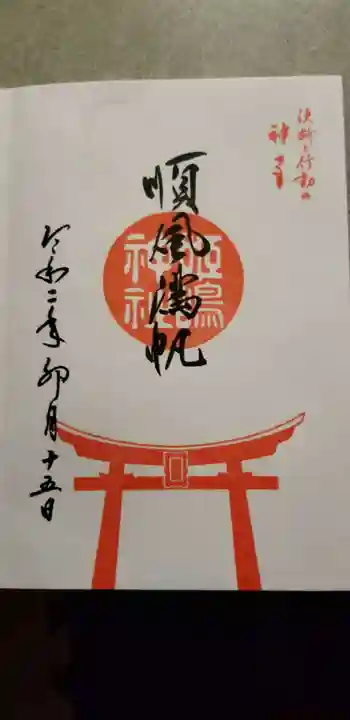 決断と行動の
神さま
順風満帆
神社
令和二年卯月十五日